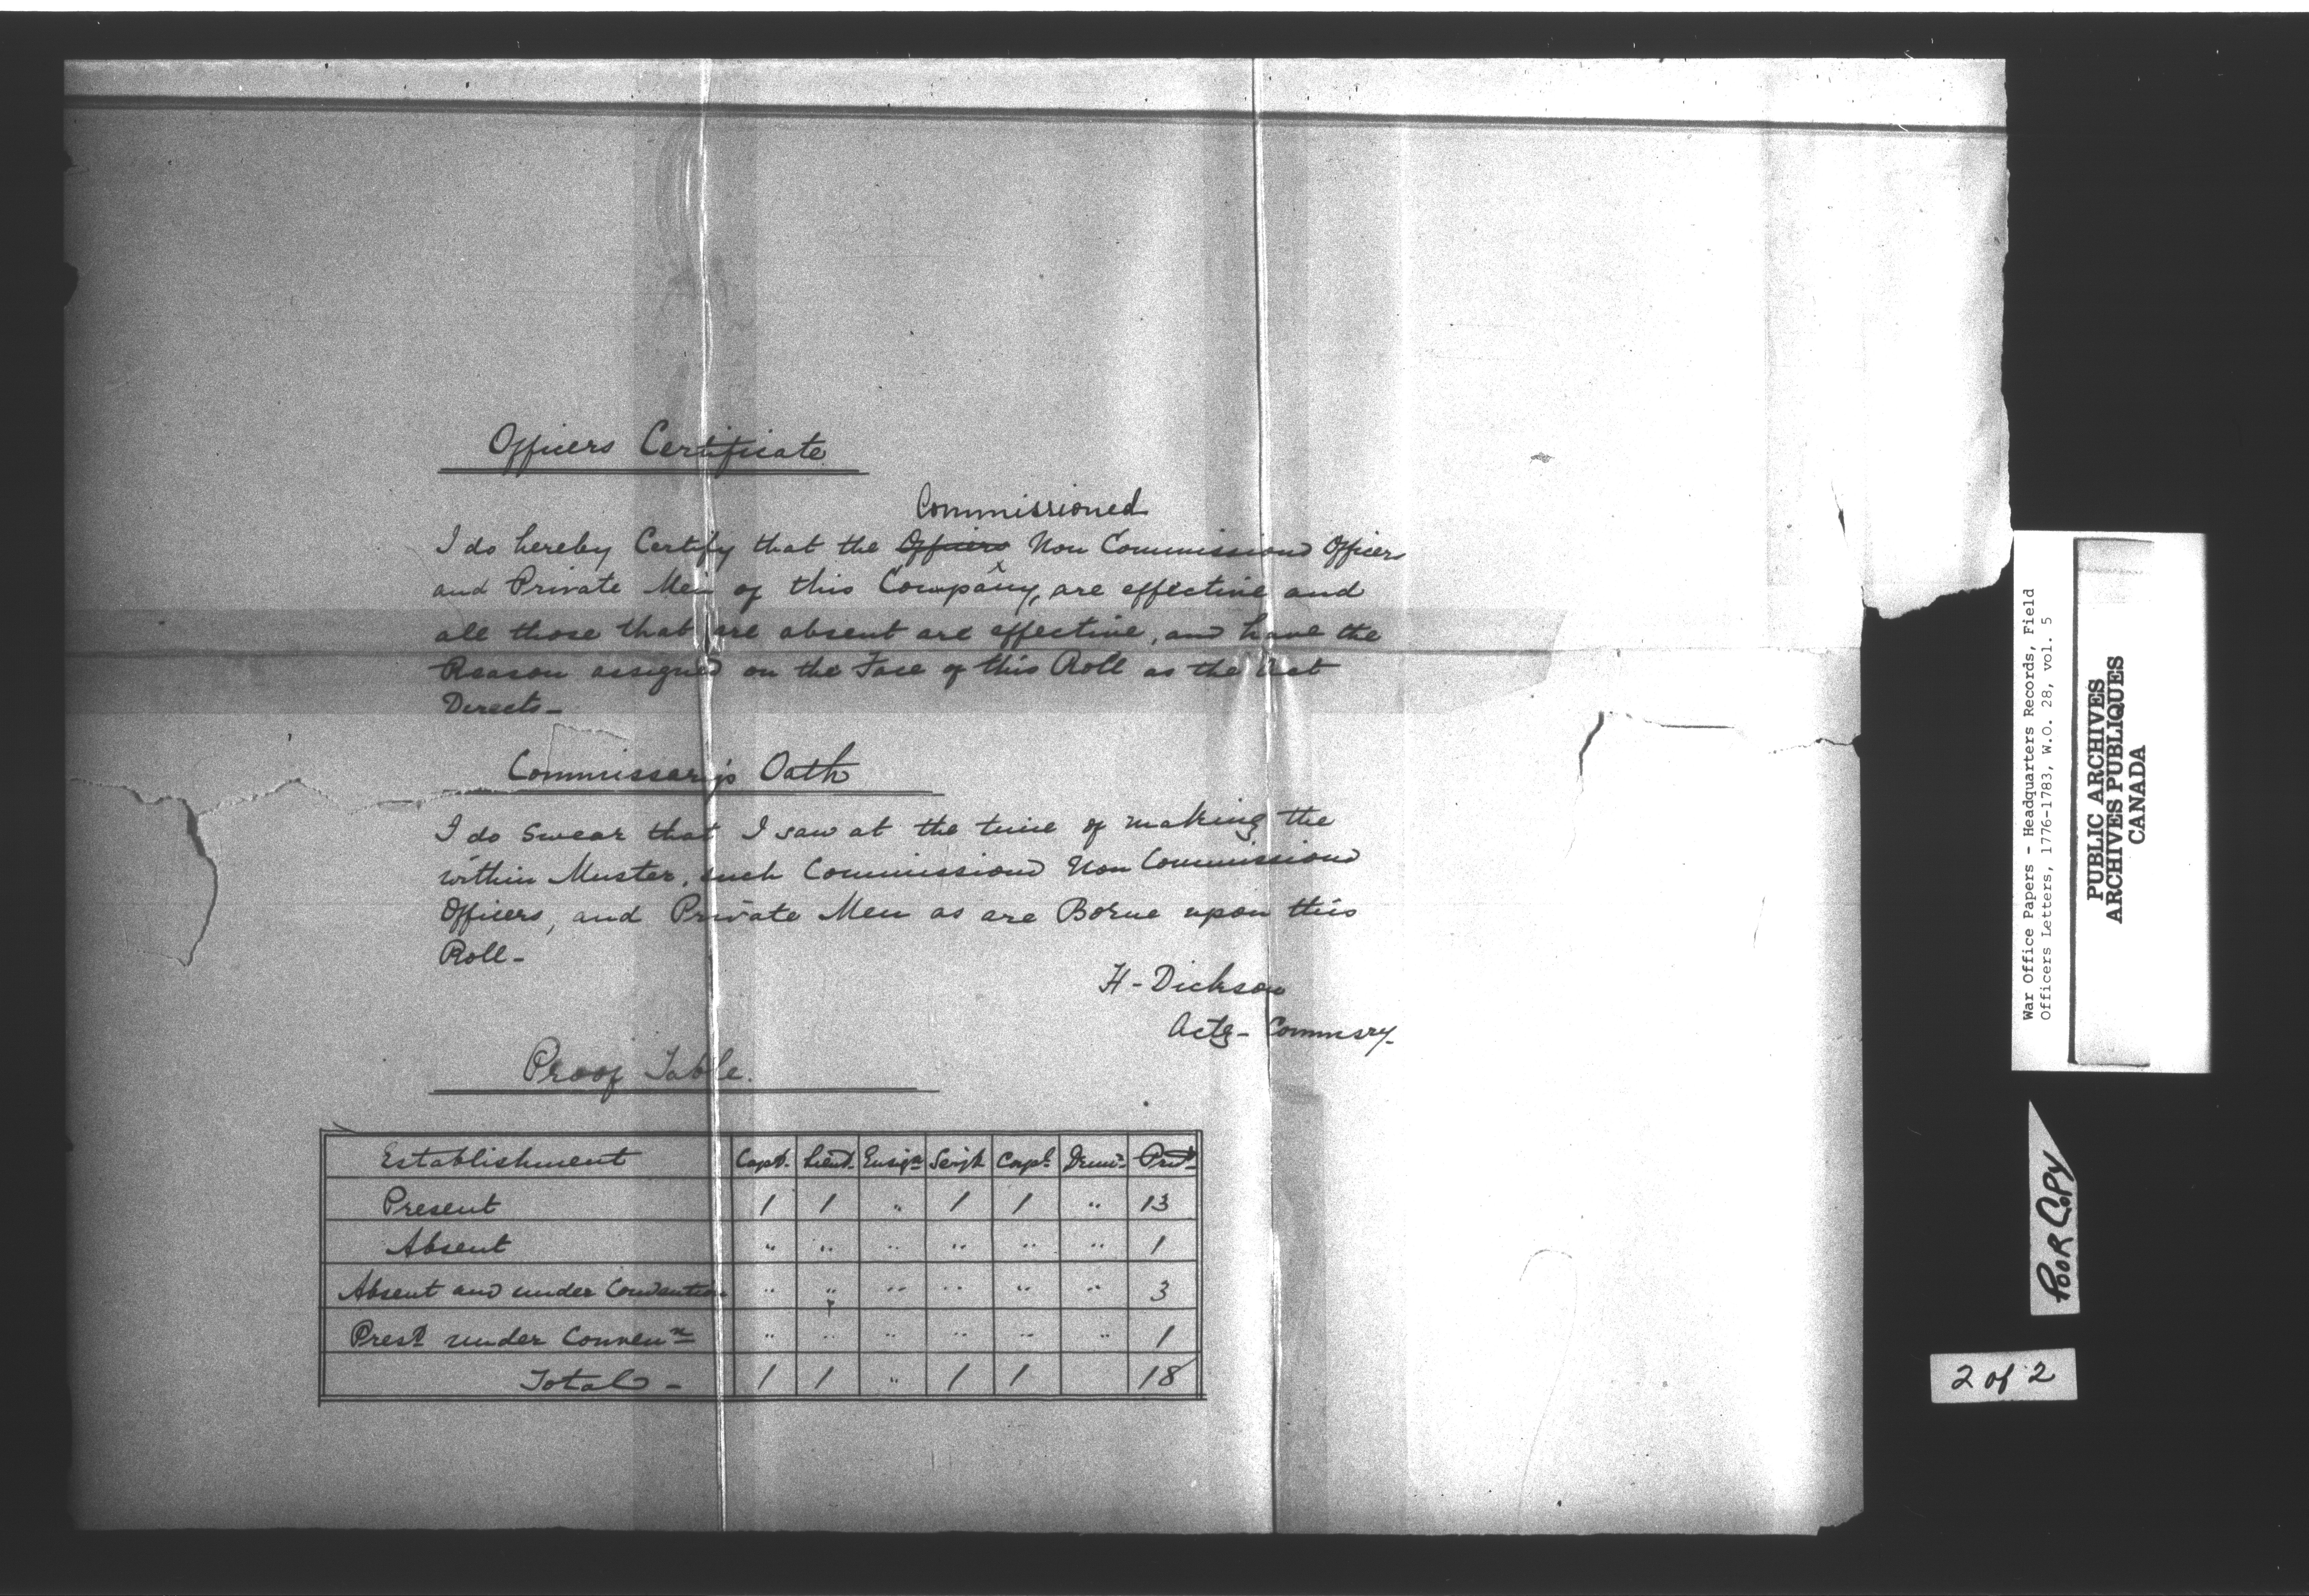 Officers Certificate
Commissioned
I do hereby Certify that the Officers Non Commissiond Officers
and Private Men of this Company, are effective and
all those that are absent are effective, and have the
Reason assigned on the Face of this Roll as the Act
Directs-
Commissary's Oath
I do Swear that I saw at the time of making the
within Muster, such Commissiond Non Commissiond
Officers, and Private Men as are Borne upon this
Roll-
H-Dickson
Actg- Commsry-
Proof Table.
Establishment Capt. Lieut. Ensign Serjt Corpl Drumr Privt
Present 1 1 " 1 1 " 13
Absent " " " " " " 1
Absent and under Convention " " " " " " 3
Prest under Conven " " " " " " 1
Total - 1 1 " 1 1 18
War Office Papers - Headquarters Records, Field
Officers Letters, 1776-1783, W.O. 28, vol. 5
PUBLIC ARCHIVES
ARCHIVES PUBLIQUES
CANADA
POOR COPY
2 of 2